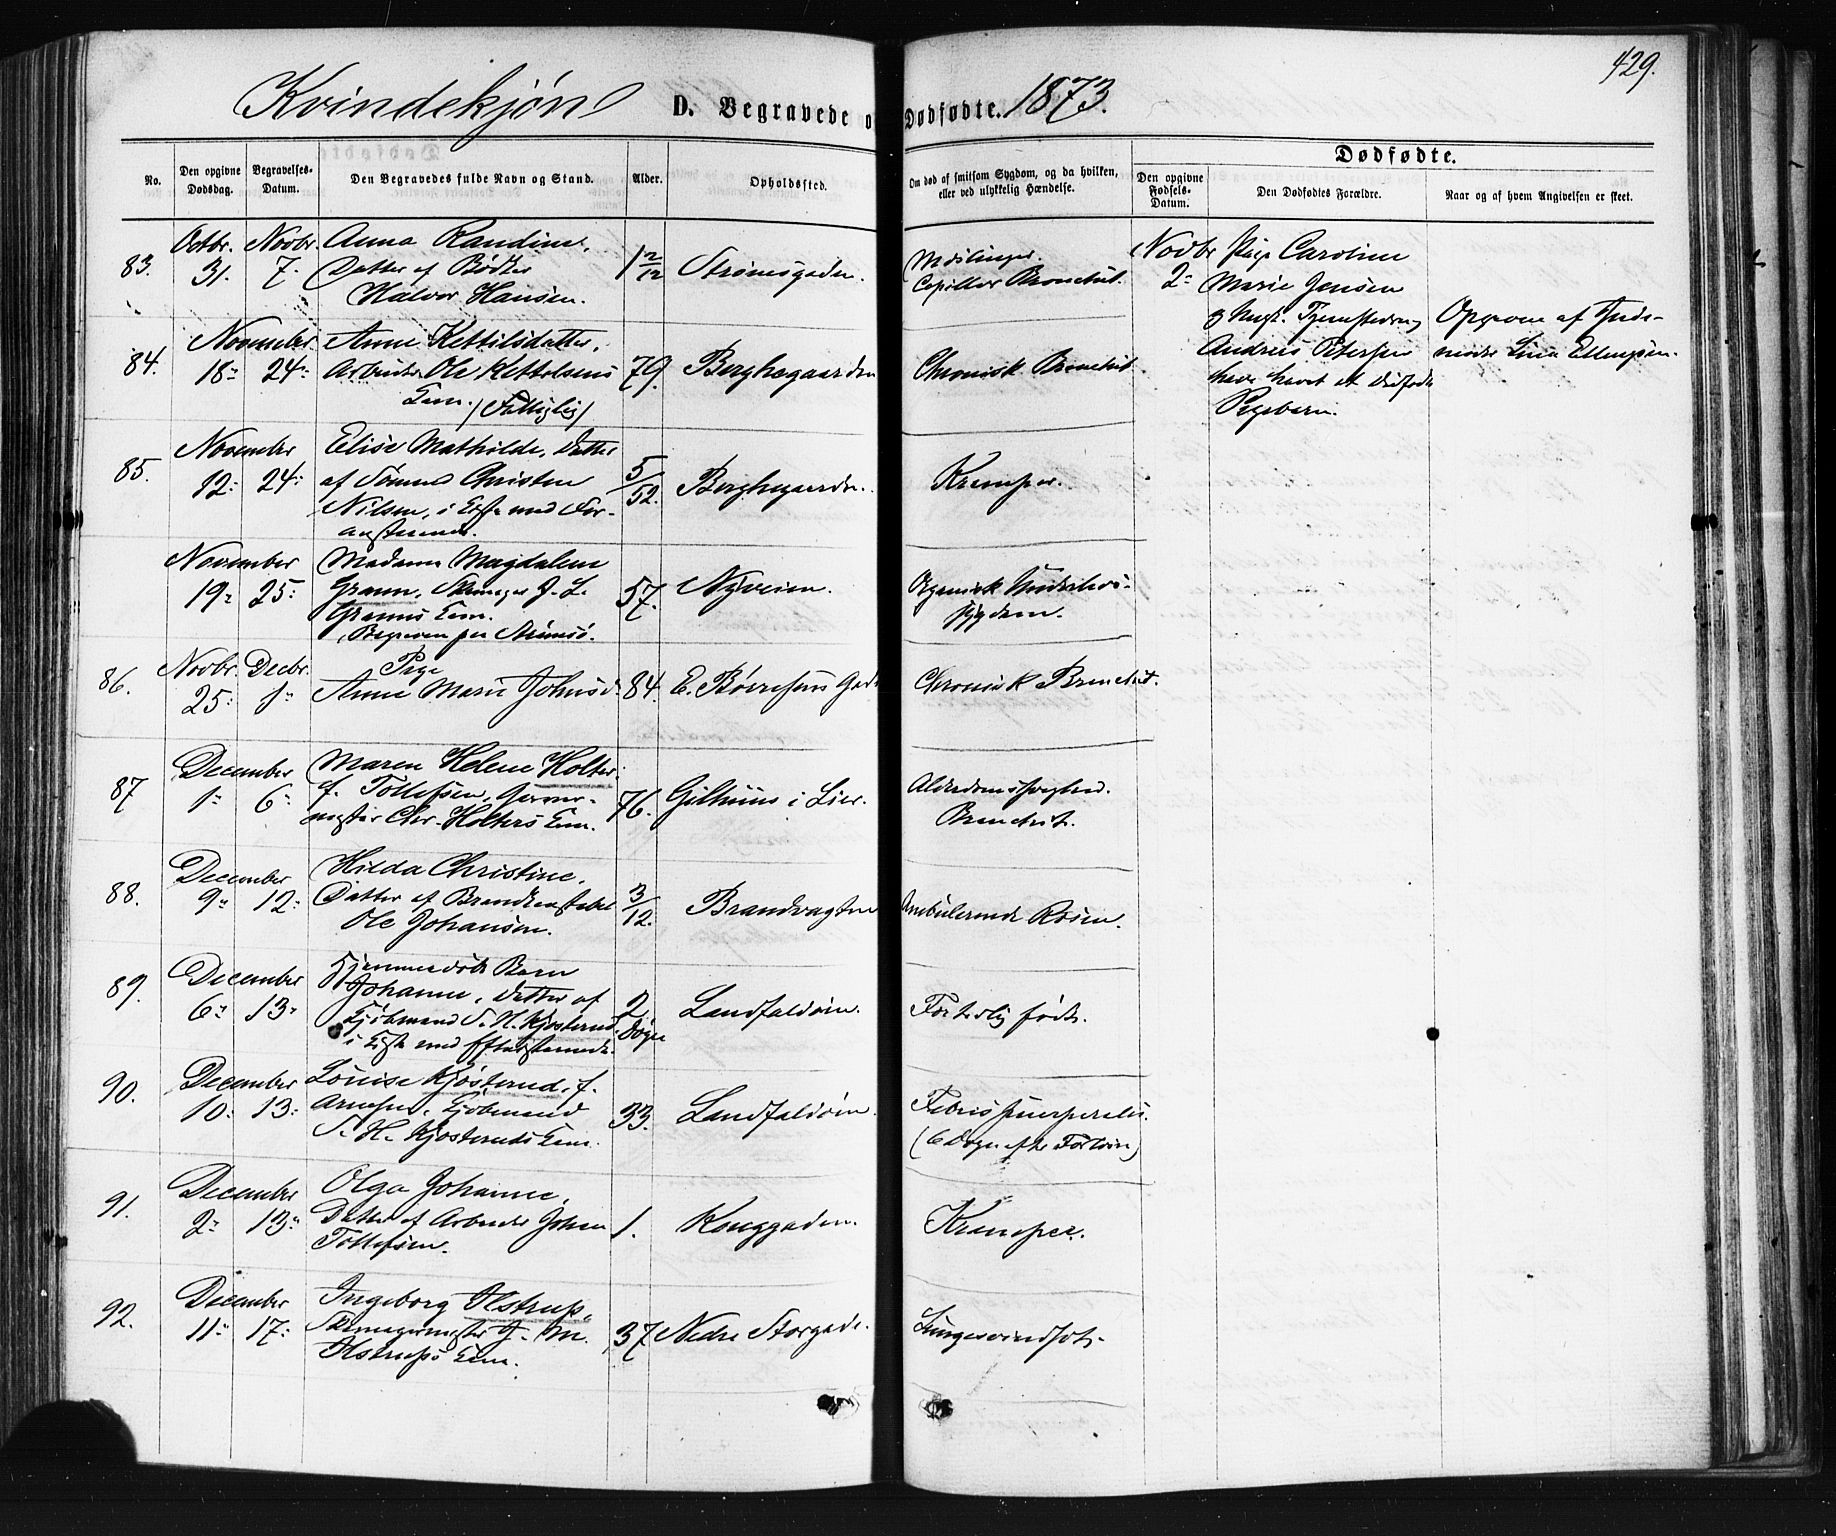 429.
Kvindekjøn D. Begravede o Dødfødte. 1873.
No.
Den opgivne Dødsdag.
Begravelses-Datum.
Den Begravedes fulde Navn og Stand.
Alder.
Opholdssted.
Om død af smitsom Sygdom, og da hvilken,
eller ved ulykkelig Hændelse.
Dødfødte.
Den opgivne Fødsels-Datum.
Den Dødfødtes Forældre.
Naar og af hvem Angivelsen er skeet.
83. Octbr. 31. Novbr. 7.
Anna Randine,
Datter af Bødker
Halvor Hansen.
1 2/12 Strømsgaden.
Mæslinger.
Capillær Bronchit.
Novbr 2
Pige Caroline
Marie Jensen
og Ungk.
Andreas Petersen
have havet et dødfødt
Pigebarn.
Opgiven af Jorde-
moder Lina Ellingsen.
84. November 18 24
Anne Kettilsdatter,
Arbeider Ole Kettelsens
Enm. (Fattiglig)
79. Berghegaarden
Chronisk Bronchit
85. November 12 24
Elise Mathilde, Datter
af Sømand Christen
Nilsen, i Kiste med For-
anstaaende.
5/52. Berghegaarden.
Kramper.
November 19 25
Madame Magdalene
Gramn, J. L.
Enm.
Begraven paa Strømsø.
57. Nyveien.
Organisk Underlivs-
sygdom.
86. Novbr. 25 Decbr. 1
Pige
Anne Marie Johnsd.
84. E. Børresens Gade
Chronisk Bronchit.
87 December 1 6
Maren Helene Holter
f. Tollefsen, Garver-
mester Chr. Holters Enm.
76. Gilhuus i Lier.
Alderdomssvaghed.
Bronchit.
88. December 9 12
Hilda Christine,
Datter af Brandkonstabel
Ole Johansen.
3/12. Brandvagten
Ambulerende Rosen.
89. December 6 13
Hjemmedøbt Barn
Johanne, Datter af
Kjøbmand S. H. Kjøsterud,
i Kiste med Efterstaaende.
2 Døgn Landfaldøen.
For tidlig født.
90. December 10 13
Louise Kjøsterud, f.
Arnesen, Kjøbmand
S. H. Kjøsteruds Enm.
33. Landfaldøen.
Febris puerperalis.
(6 Døgn efter Forløsn)
91. December 2 13
Olga Johanne,
Datter af Arbeider Johan
Tollefsen.
1. Konggaden.
Kramper.
92. December 11 17
Ingeborg Olstrup,
Skomagermester J. M.
Olstrups Enm.
37 Nedre Storgade.
Lungesvindsot.